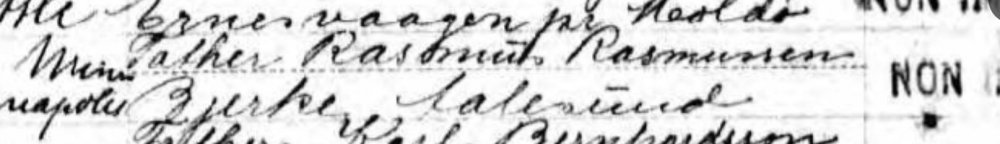 Ernesvaagen pr Molde NON
Minn Father Rasmus Rasmussen
neapolis Bjerke, Aalesund NON
Father Karl Bernhardsson